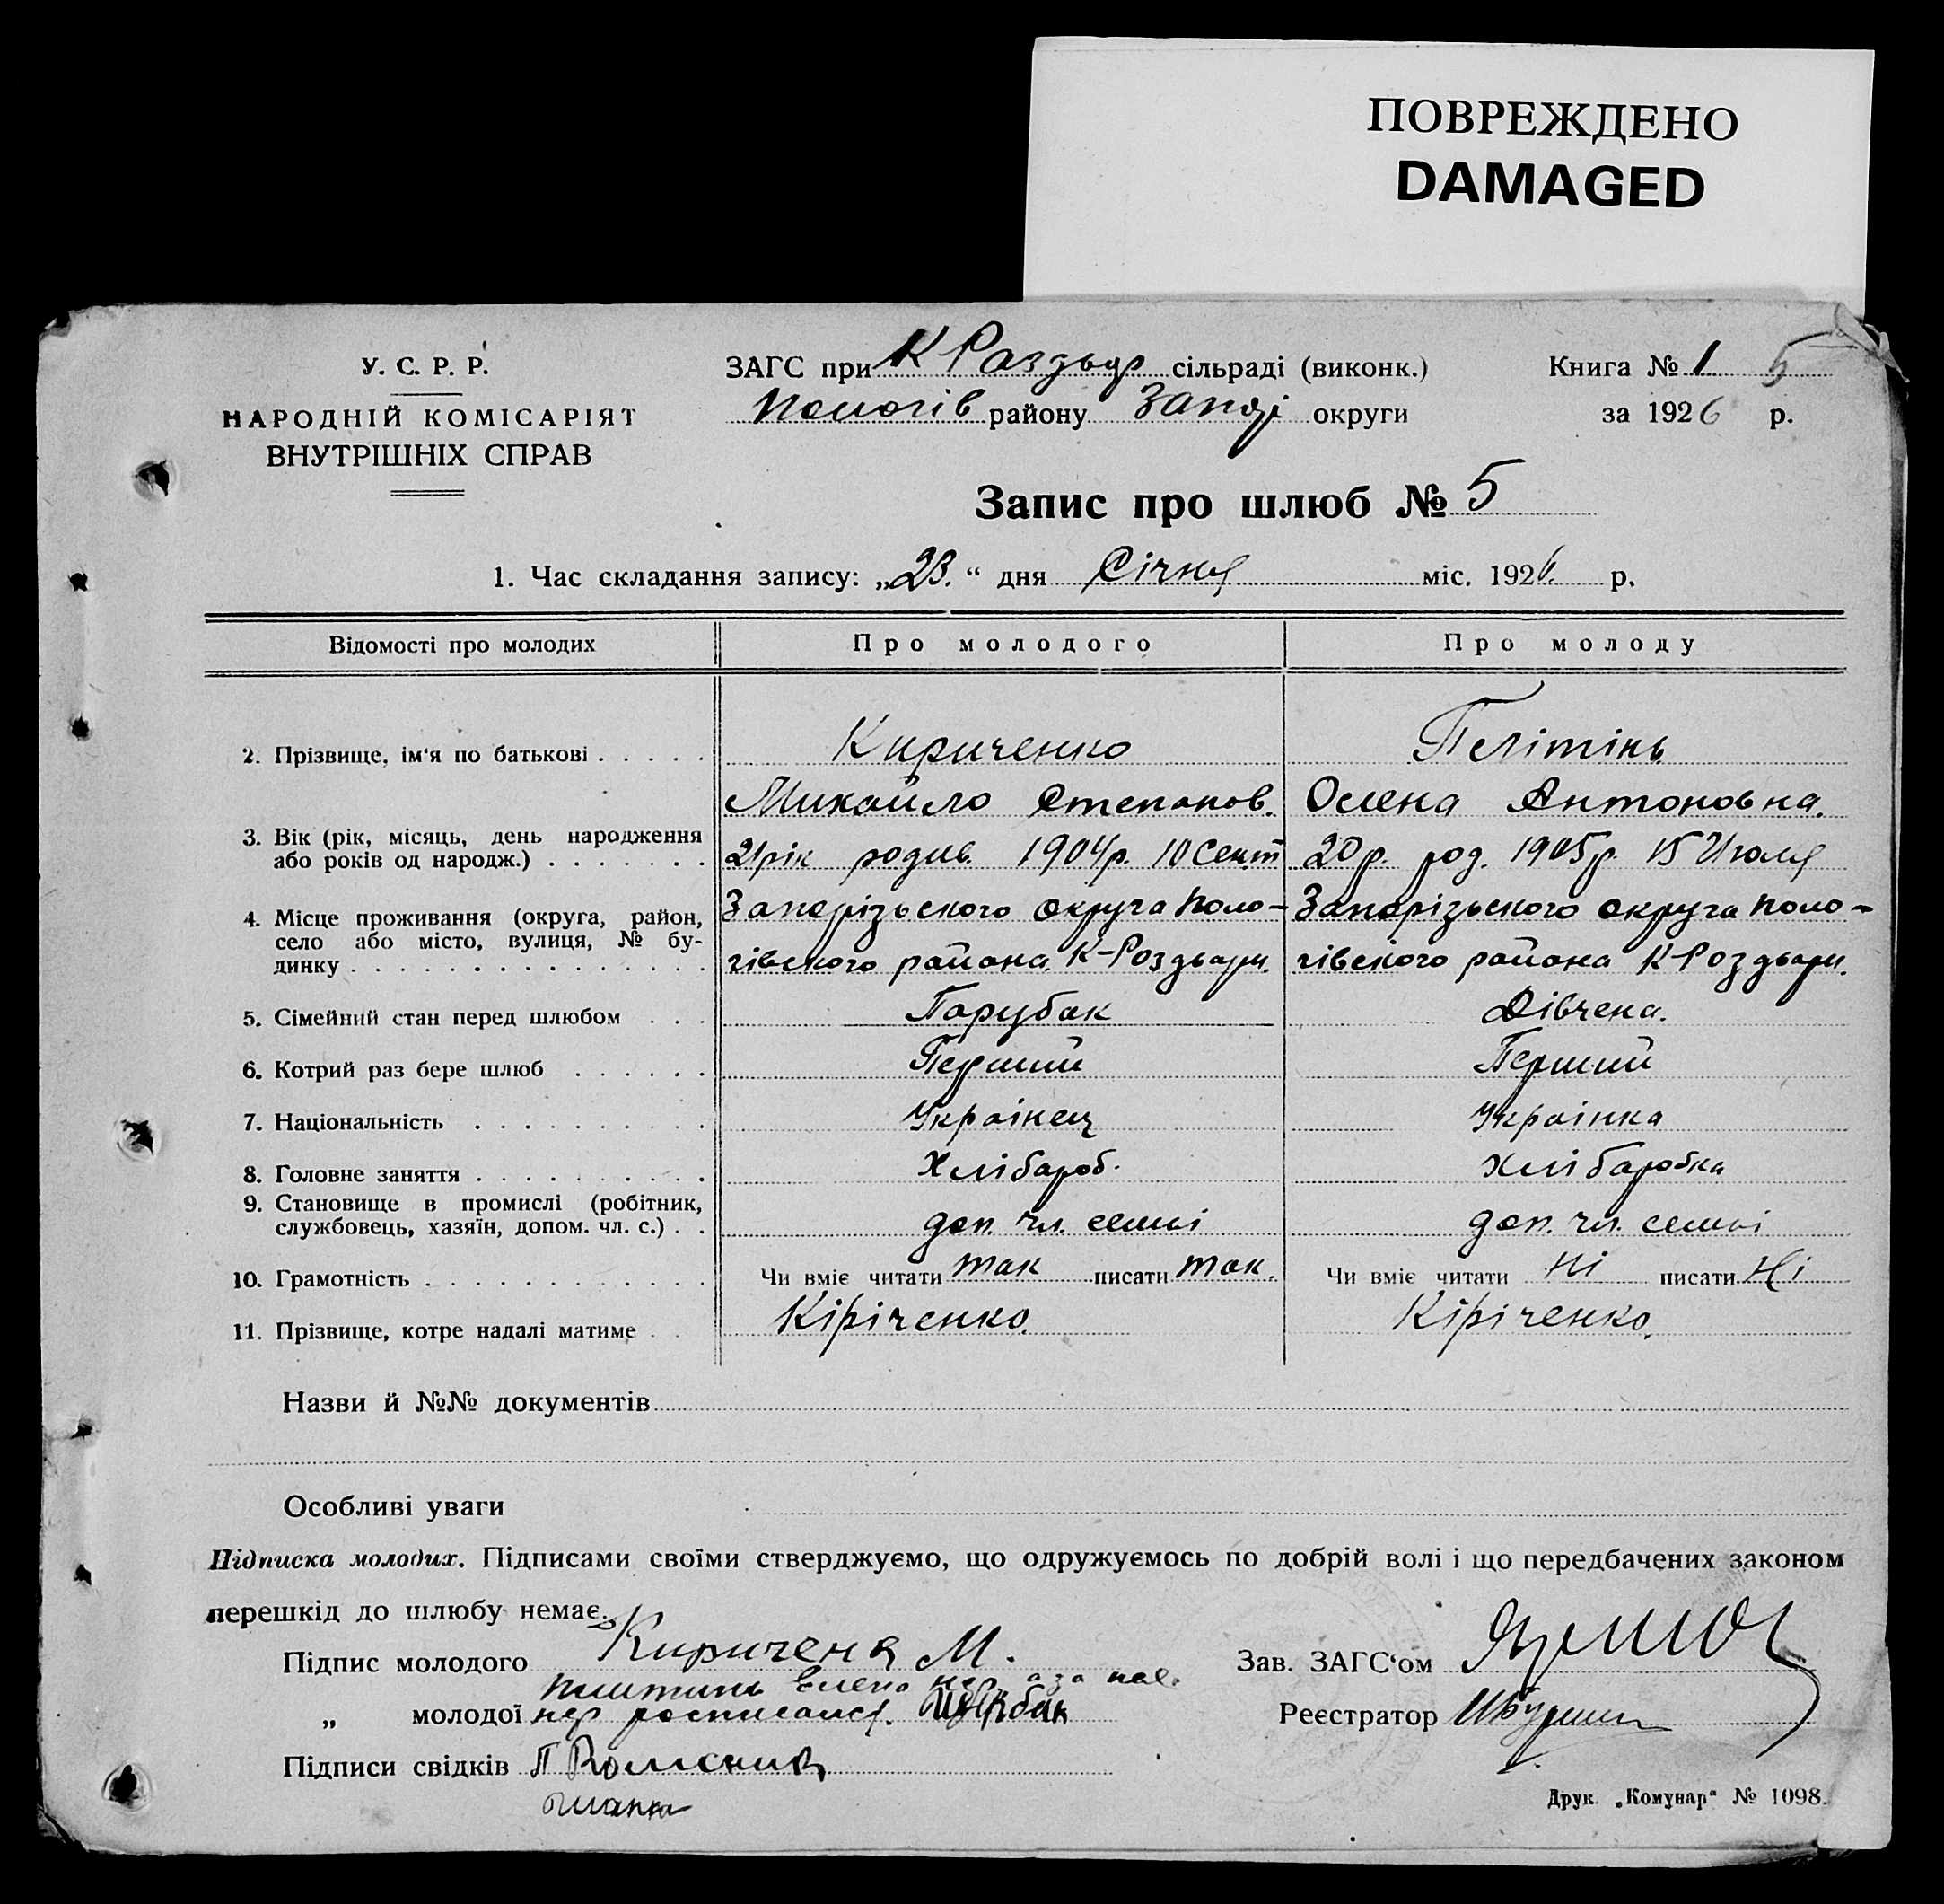 ПОВРЕЖДЕНО
DAMAGED
У. С. Р. Р.
НАРОДНІЙ КОМІСАРІЯТ
ВНУТРІШНІХ СПРАВ
ЗАГС при К Раздьор сільраді (виконк.)
Пологів району Запоріз округи
Книга № 1 5
за 1926 р.
Запис про шлюб № 5
1. Час складання запису: „23.“ дня Січня міс. 1926. р.
Відомості про молодих Про молодого Про молоду
2. Прізвище, ім'я по батькові Кириченко Пелітінь
Михайло Степанов. Олена Антоновна.
3. Вік (рік, місяць, день народження
або років од народж.) 21 рік родив. 1904р. 10 Сент 20 р. род. 1905р. 15 Июля
4. Місце проживання (округа, район,
село або місто, вулиця, № бу-
динку
Запорізьского округа Поло-
гівского района К-Роздьори.
Запорізьского округа Поло-
гівского района К-Роздьори.
5. Сімейний стан перед шлюбом Парубак Дівчена.
6. Котрий раз бере шлюб Перший Перший
7. Національність Украінец Украінка
8. Головне заняття Хлібароб. Хлібаробка
9. Становище в промислі (робітник,
службовець, хазяїн, допом. чл. с.) доп. чл. семьі доп. чл. семьі
10. Грамотність Чи вміє читати так писати так. Чи вміє читати ні писати Ні
11. Прізвище, котре надалі матиме Кіріченко. Кіріченко.
Назви й №№ документів
Особливі уваги
Підписка молодих. Підписами своїми стверджуємо, що одружуємось по добрій волі і що передбачених законом
перешкід до шлюбу немає.
Підпис молодого Кириченко М.
Елена
„ молодої
Підписи свідків П
Зав. ЗАГС'ом
Реєстратор
Друк. „Комунар“ № 1098.